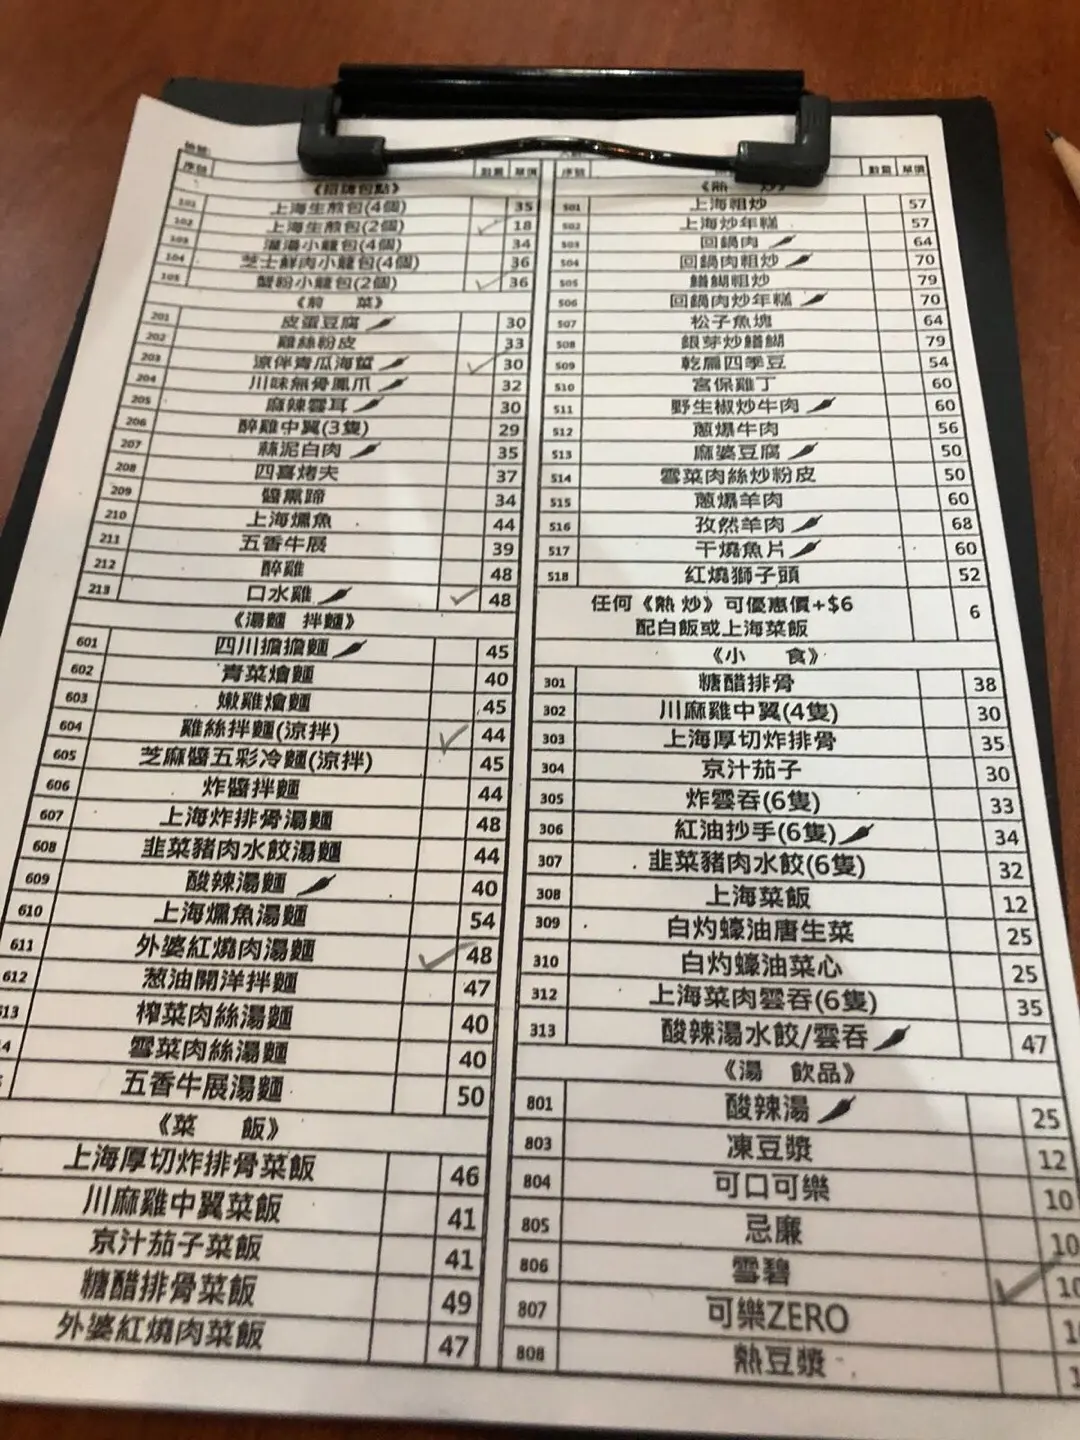 序號 數量 單價
《招牌包點》
101 上海生煎包(4個) 35
102 上海生煎包(2個) 18
103 灌湯小籠包(4個) 34
104 芝士鮮肉小籠包(4個) 36
105 蟹粉小籠包(2個) 36
《前 菜》
201 皮蛋豆腐 30
202 雞絲粉皮 33
203 涼伴青瓜海蜇 30
204 川味無骨鳳爪 32
205 麻辣雲耳 30
206 醉雞中翼(3隻) 29
207 蒜泥白肉 35
208 四喜烤夫 37
209 醬燻蹄 34
210 上海燻魚 44
211 五香牛展 39
212 醉雞 48
213 口水雞 48
《湯麵 拌麵》
601 四川擔擔麵 45
602 青菜燴麵 40
603 嫩雞燴麵 45
604 雞絲拌麵(涼拌) 44
605 芝麻醬五彩冷麵(涼拌) 45
606 炸醬拌麵 44
607 上海炸排骨湯麵 48
608 韭菜豬肉水餃湯麵 44
609 酸辣湯麵 40
610 上海燻魚湯麵 54
611 外婆紅燒肉湯麵 48
612 葱油開洋拌麵 47
613 榨菜肉絲湯麵 40
4 雪菜肉絲湯麵 40
五香牛展湯麵 50
《菜 飯》
上海厚切炸排骨菜飯 46
川麻雞中翼菜飯 41
京汁茄子菜飯 41
糖醋排骨菜飯 49
外婆紅燒肉菜飯 47
序號 數量 單價
《熱 炒》
501 上海粗炒 57
502 上海炒年糕 57
503 回鍋肉 64
504 回鍋肉粗炒 70
505 鱔糊粗炒 79
506 回鍋肉炒年糕 70
507 松子魚塊 64
508 銀芽炒鱔糊 79
509 乾扁四季豆 54
510 宮保雞丁 60
511 野生椒炒牛肉 60
512 蔥爆牛肉 56
513 麻婆豆腐 50
514 雪菜肉絲炒粉皮 50
515 蔥爆羊肉 60
516 孜然羊肉 68
517 干燒魚片 60
518 紅燒獅子頭 52
任何《熱 炒》可優惠價+$6 6
配白飯或上海菜飯
《小 食》
301 糖醋排骨 38
302 川麻雞中翼(4隻) 30
303 上海厚切炸排骨 35
304 京汁茄子 30
305 炸雲吞(6隻) 33
306 紅油抄手(6隻) 34
307 韭菜豬肉水餃(6隻) 32
308 上海菜飯 12
309 白灼蠔油唐生菜 25
310 白灼蠔油菜心 25
312 上海菜肉雲吞(6隻) 35
313 酸辣湯水餃/雲吞 47
《湯 飲品》
801 酸辣湯 25
803 凍豆漿 12
804 可口可樂 10
805 忌廉 10
806 雪碧 10
807 可樂ZERO 1
808 熱豆漿 1